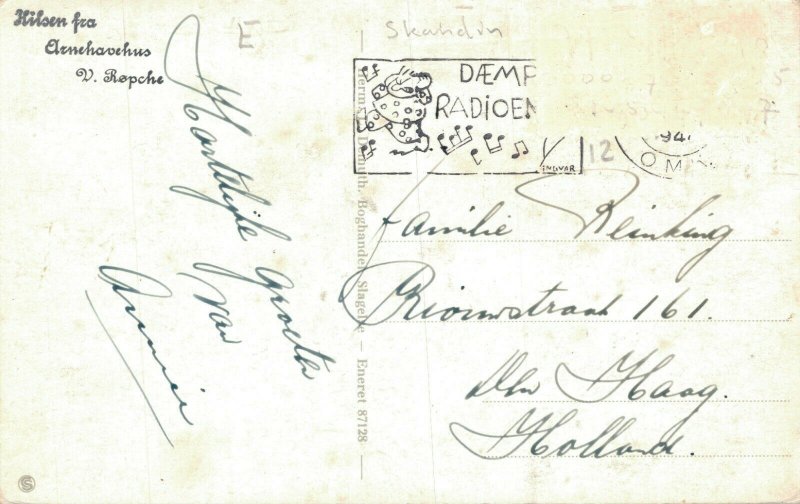 Hilsen fra
Arnehavehus
V. Røpche
E
Skandin
DÆMP
RADIOEN
INGVAR
12
194
OM
5
7
Hartelijke groeten
van
Annie
Familie Reinking
Riouwstraat 161.
Den Haag.
Holland.
Boghandel, Slagelse — Eneret 87128
S